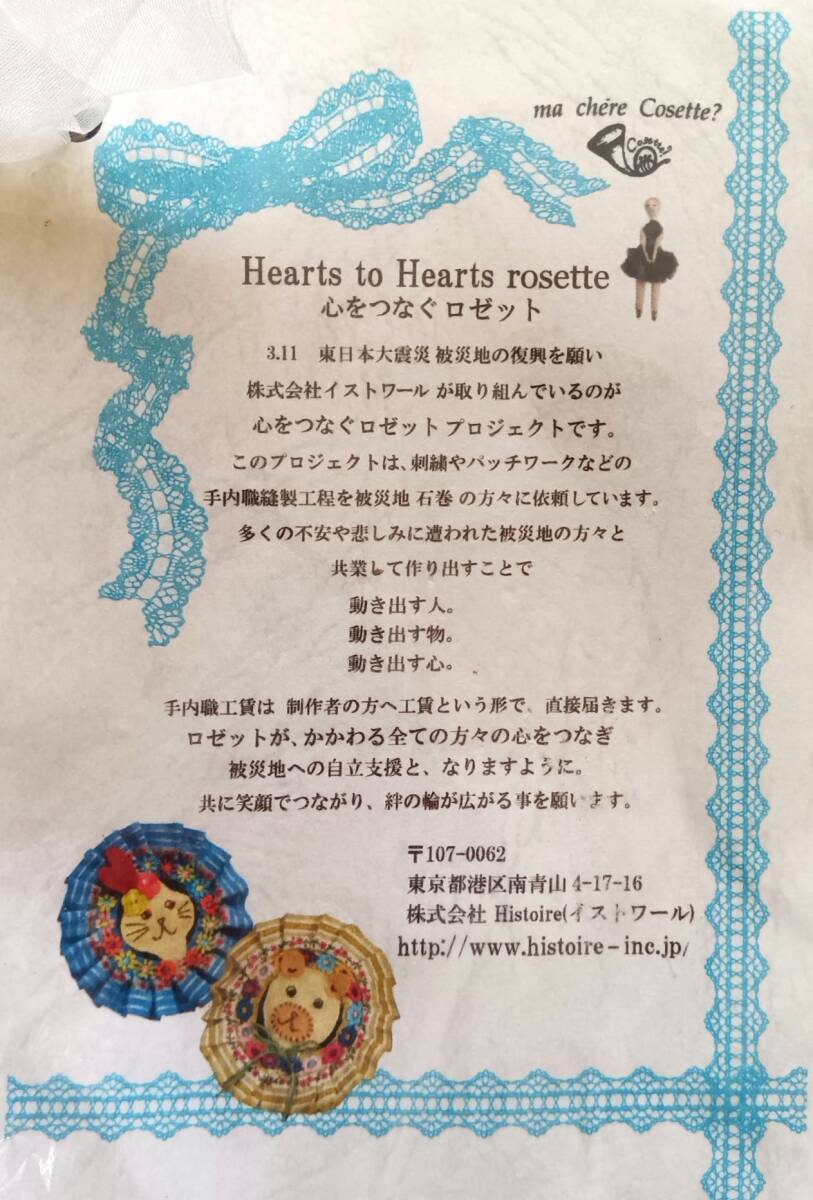 ma chére Cosette?
Cosette?
Hearts to Hearts rosette
心をつなぐロゼット
3.11 東日本大震災 被災地の復興を願い
株式会社イストワール が取り組んでいるのが
心をつなぐロゼット プロジェクトです。
このプロジェクトは、刺繍やパッチワークなどの
手内職縫製工程を被災地 石巻 の方々に依頼しています。
多くの不安や悲しみに遭われた被災地の方々と
共業して作り出すことで
動き出す人。
動き出す物。
動き出す心。
手内職工賃は 制作者の方へ工賃という形で、直接届きます。
ロゼットが、かかわる全ての方々の心をつなぎ
被災地への自立支援と、なりますように。
共に笑顔でつながり、絆の輪が広がる事を願います。
〒107-0062
東京都港区南青山 4-17-16
株式会社 Histoire(イストワール)
http://www.histoire-inc.jp/